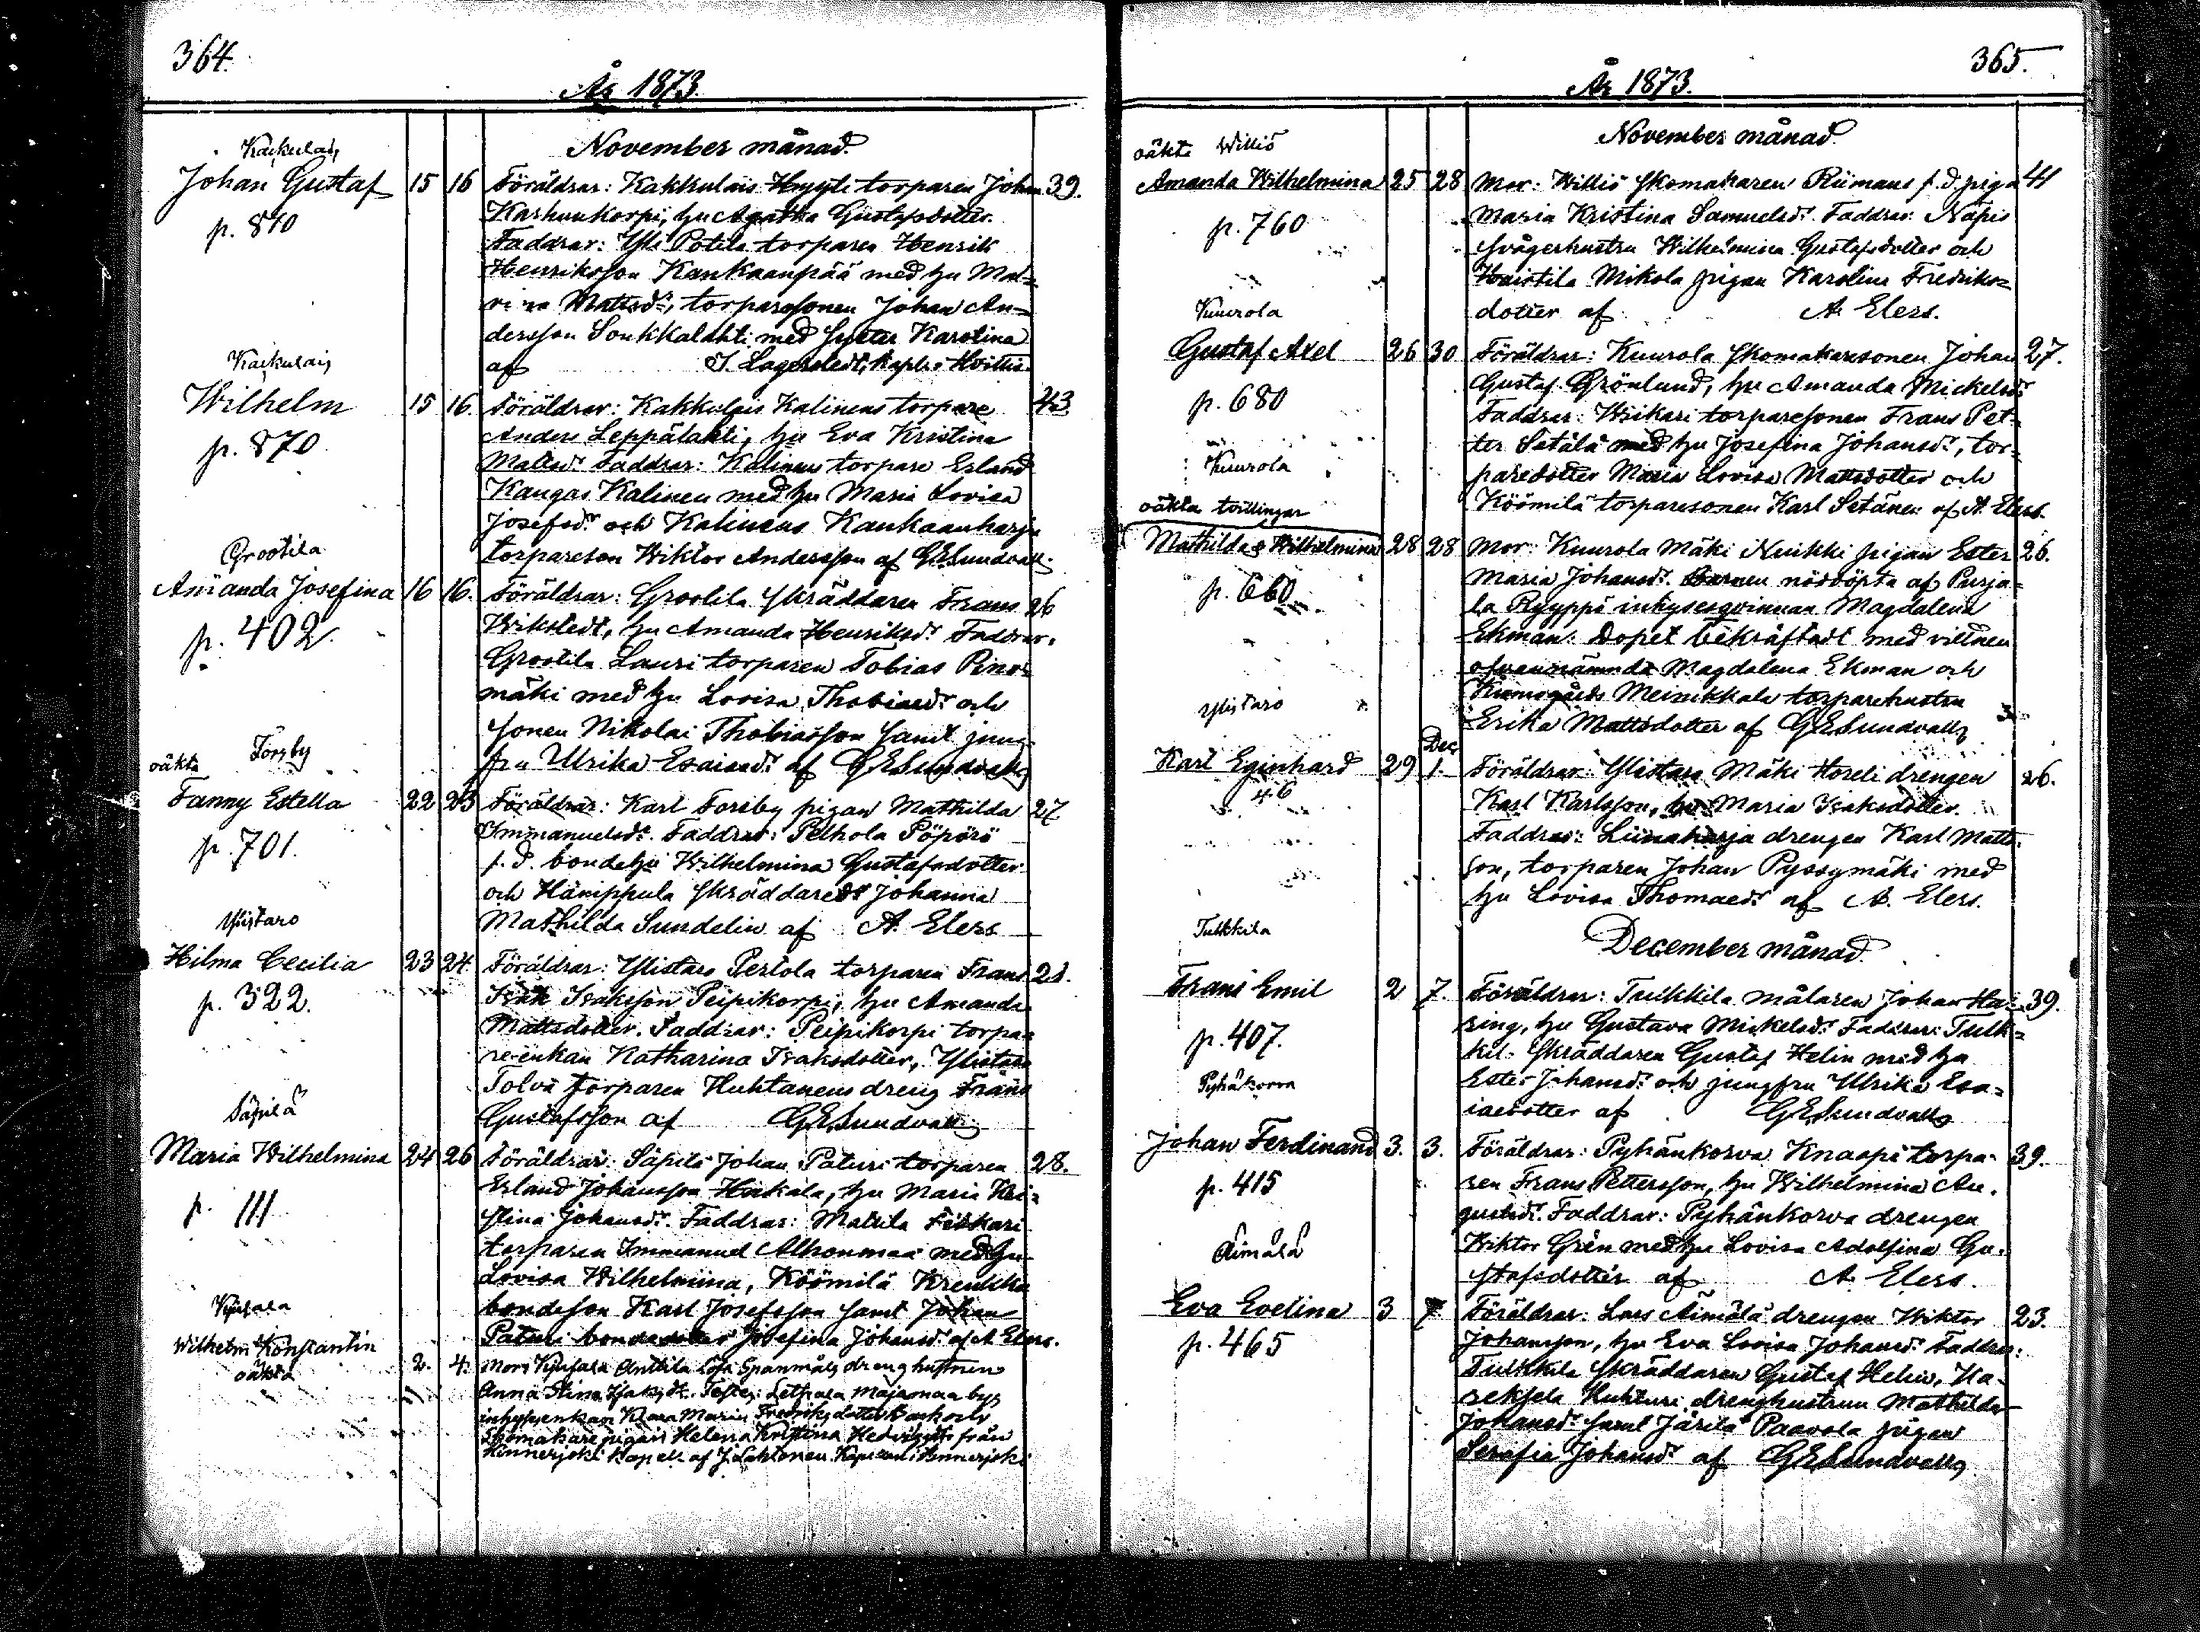 364.
År 1873.
November månad.
Kakkulais
Johan Gustaf 15 16 Föräldrar: Kakkulais Hyyyti torparen Johan 39.
p. 870
Karhunkorpi, hu Agatha Gustafsdotter.
Faddrar: Yli Potila torparen Henrik
Henriksson Kankaanpää med hu Mal-
vina Mattsdr, torparesonen Johan An-
dersson Soukkalahti med syster Karolina
af J. Lagerstedt, kapl. i Hvittis.
Kakkulais
Wilhelm 15 16. Föräldrar: Kakkulais Kalinens torpare 43
p. 870
Anders Leppälahti, hu Eva Kristina
Mattsdr. Faddrar: Kalinens torpare Erland
Kangas Kalinen med hu Maria Lovisa
Josefsdr och Kalinens Kankaanharju
torpareson Wiktor Andersson af G.E. Sundvall.
Grootila
Amanda Josefina 16 16. Föräldrar: Grootila Skräddaren Frans 26
p. 402.
Wikstedt, hu Amanda Henriksdr. Faddrar:
Grootila Lauri torparen Tobias Rino-
mäki med hu Lovisa Thobiaedr och
sonen Nikolai Thobiasson samt jung-
fru Ulrika Esaiaedr af G.E. Sundvall
oäkta Torsby
Fanny Estella 22 23 Föräldrar: Karl Forsby pigan Mathilda 27
p. 701.
Immanuelsdr. Faddrar: Pelhola Pöpörö
f.d. bondehu Wilhelmina Gustafsdotter
och Hämppula Skräddaredr Johanna
Mathilda Sundelin af A. Elers
Ylistaro
Hilma Cecilia 23 24. Föräldrar: Ylistaro Pertola torparen Frans 21.
p. 322.
Isak Isaksson Peipikorpi, hu Amanda
Mattsdotter. Faddrar: Peipikorpi torpa-
re-enkan Katharina Isaksdotter, Ylistaro
Tolvi torparen Huhtanens dreng Frans
Gustafsson af G.E. Sundvall
Säpilä
Maria Wilhelmina 24 26 Föräldrar: Säpilä Johan Paturi torparen 28.
p. 111
Erland Johansson Hakala, hu Maria Kri-
stina Johansdr. Faddrar: Matula Fiskari
torparen Immanuel Alhonmaa med hu
Lovisa Wilhelmina, Köömilä Kreukka
bondeson Karl Josefsson samt Johan
Paturi bondedotter Josefina Johansdr af A. Elers.
Wilhelm Konstantin 2. 4.
oäkta
365.
År 1873.
November månad.
oäkta Williö
Amanda Wilhelmina 25 28 Mor: Williö Skomakaren Riimans f.d. piga 41
p. 760
Maria Kristina Samuelsdr. Faddrar: Näpis
svågerhustru Wilhelmina Gustafsdotter och
Haistila Mikola pigan Karolina Fredriks-
dotter af A. Elers.
Kuurola
Gustaf Axel 26 30 Föräldrar: Kuurola Skomakaresonen Johan 27.
p. 680
Gustaf Grönlund, hu Amanda Mickelsdr
Faddrar: Wiikari torparesonen Frans Pet-
ter Satälä med hu Josefina Johansdr, tor-
paredotter Maria Lovisa Mattsdotter och
Köömilä torparesonen Karl Setänen af A. Elers.
Kuurola
oäkta tvillingar
Mathilda & Wilhelmina 28 28 Mor: Kuurola Mäki Nuikki pigan Ester 26.
p. 660
Maria Johansdr. Barnen nöddöpta af Purja-
la Ryyppö inhysesqvinnan Magdalena
Ekman. Dopet bekräftadt med vittnen
ofvannämnde Magdalena Ekman och
Kumogårds Meinikkala torparehustru
Erika Mattsdotter af G.E. Sundvall
Ylistaro
Dec.
Karl Eginhard 29 1. Föräldrar: Ylistaro Mäki Horeli drengen 26.
46
Karl Karlsson, hu Maria Isaksdotter.
Faddrar: Liinaharja drengen Karl Matts-
son, torparen Johan Pyssymäki med
hu Lovisa Thomaedr af A. Elers.
December månad.
Tulkkila
Frans Emil 2 7. Föräldrar: Tulkkila målaren Johan Ha- 39.
p. 407.
ring, hu Gustava Mickelsdr. Faddrar: Tulk-
kila Skräddaren Gustaf Helin med hu
Ester Johansdr och jungfru Ulrika Esa-
iaedotter af G.E. Sundvall
Pyhänkorva
Johan Ferdinand 3. 3. Föräldrar: Pyhänkorva Knaapi torpa- 39.
p. 415
ren Frans Pettersson, hu Wilhelmina Au-
gustsdr. Faddrar: Pyhänkorva drengen
Wiktor Grén med hu Lovisa Adolfina Gu-
stafsdotter af A. Elers.
Äimälä
Eva Evelina 3 7 Föräldrar: Lars Äimälä drengen Wiktor 23.
p. 465
Johansson, hu Eva Lovisa Johansdr. Faddrar:
Tulkkila Skräddaren Gustaf Helin, Ha-
Huhturi drenghustrun Mathilda
Johansdr samt Järilä Paavola pigan
Serafia Johansdr af G.E. Sundvall